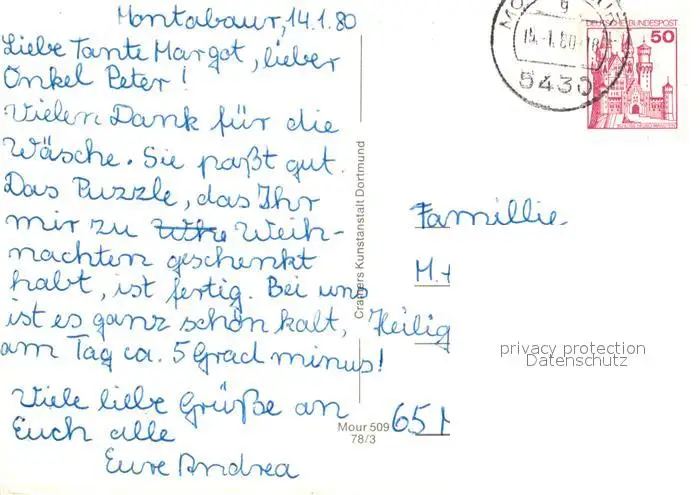 Montabaur, 14.1.80
Liebe Tante Margot, lieber
Onkel Peter!
Vielen Dank für die
Wäsche. Sie paßt gut.
Das Puzzle, das Ihr
mir zu Weih-
nachten geschenkt
habt, ist fertig. Bei uns
ist es ganz schön kalt,
am Tag ca. 5 Grad minus!
Viele liebe Grüße an
Euch alle
Eure Andrea
Cramers Kunstanstalt Dortmund
Mour 509
78/3
5430
DEUTSCHE BUNDESPOST
50
Famillie
M.+
Heilig
65
privacy protection
Datenschutz